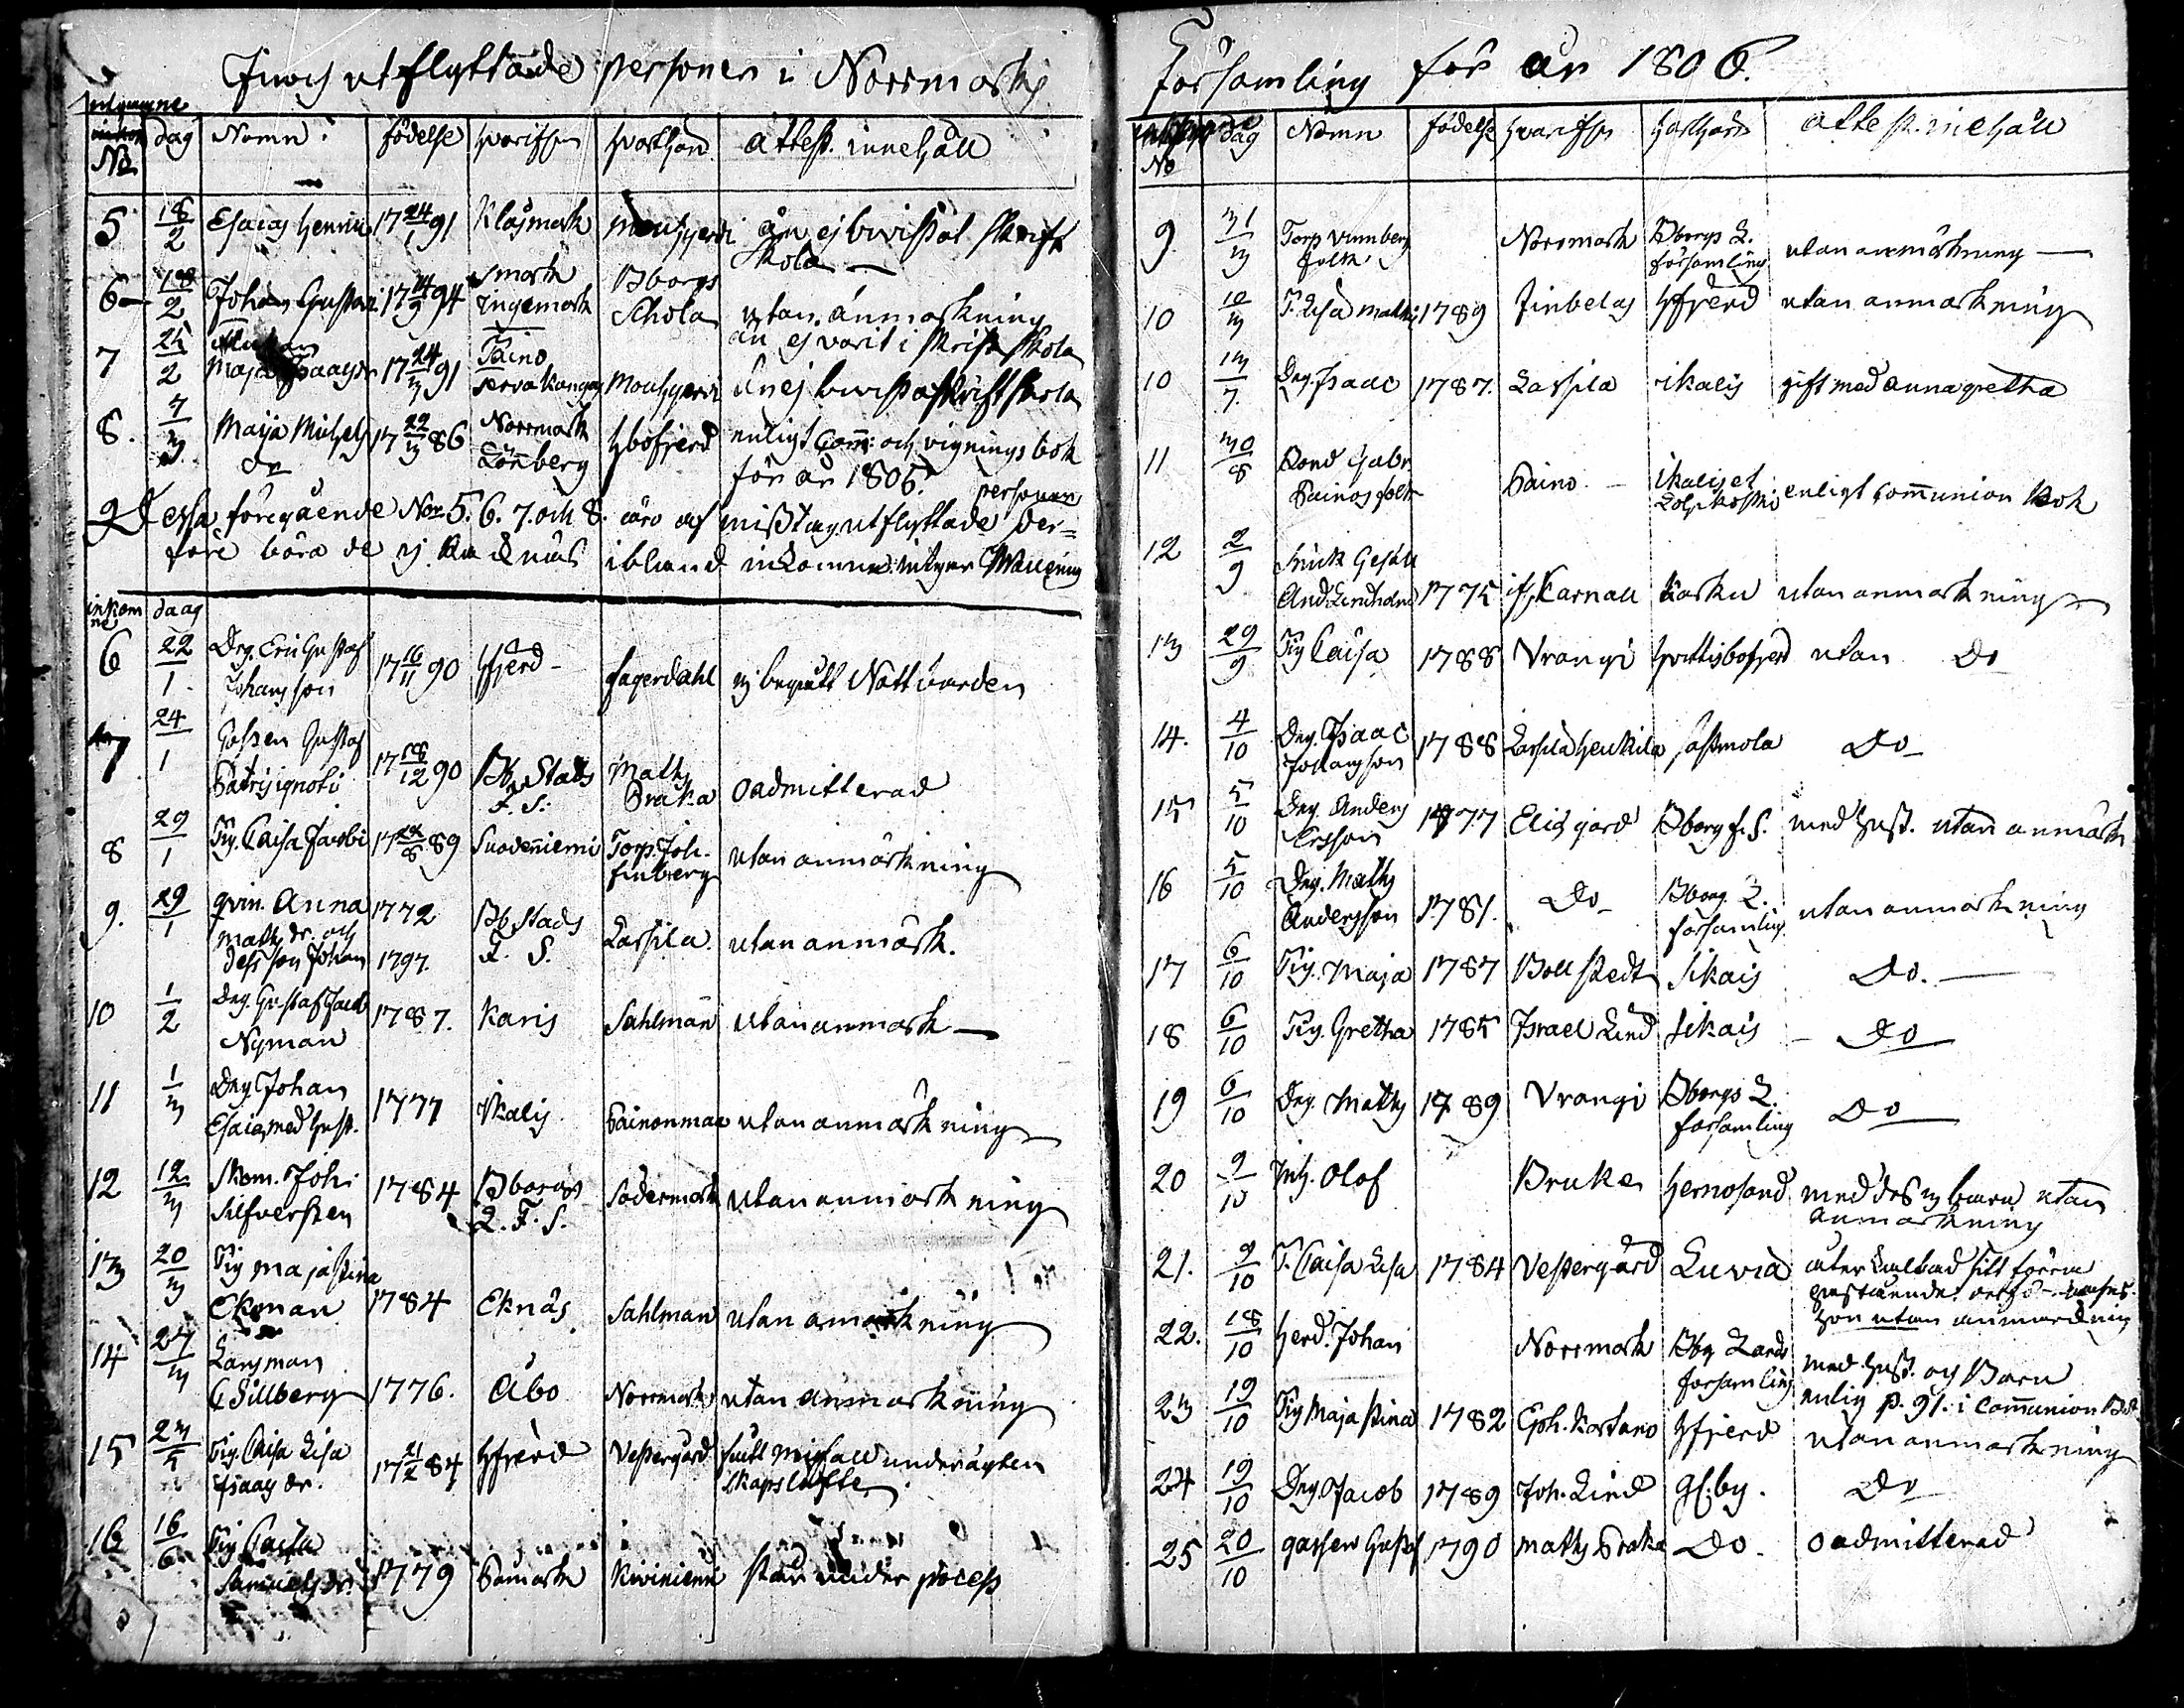 In och utflyttade personer i Norrmarks
utgångne
No dag Namn födelse hvarifrån hvarthän attest. innehåll
5 18/2 Esaias Henrici 17 24/1 91 Klåsmark Mouhjervi än ej bevistat skrift
skola
6 18/2 Johan Gustavi 17 14/9 94 Smark Ingemark Bborgs Schola utan anmärkning
än ej varit i skriftskola
7 25/2 Maja Isaacsdr 17 24/3 91 Paino Mouhjervi än ej bevistat skriftskola
8. 7/3 Maija Michels dr 17 22/3 86 Norrmark Lönnberg Hbofjerd enligt Com: och vigningsbok
för år 1805.
Dessa föregående No 5. 6. 7. och 8. äro af misstag utflyttade personer der=
före böra de ej ibland inkomne
inkomne daag
6 22/1 Drg. Eric Gustaf Johansson 17 16/11 90 Hfjerd fagerdahl ej begått Nattvarden
7 24/1 Gossen Gustaf Patris ignoti 17 18/12 90 Bb. Stads F. S. Maths Braka oadmitterad
8 29/1 Pig. Caisa Jacobi 17 22/8 89 Suodenniemi Torp. Joh. finberg utan anmärkning
9. 29/1 qvin. Anna Maths dr. och dess son Johan 1772 1797. Bb Stads F. S. Lassila utan anmärk.
10 1/2 Drg. Gustaf Jacob Nyman 1787. Karis Sahlman utan anmärk
11 1/3 Drg. Johan Esaias med hust. 1777 Ikalis Painonmaa utan anmärkning
12 12/3 Skom. Joh: Silfversten 1784 Bborgs L. F. S. Södermark utan anmärkning
13 20/3 Pig Maja Stina Ekman 1784 Eknäs Sahlman utan anmärkning
14 27/3 Länsman C Sillberg 1776. Åbo Norrmark utan anmärkning
15 23/5 Pig. Caisa Lisa Isaacs dr. 17 21/2 84 Hfjerd Vestergård fått missfall under ägten
skapslöfte
16 16/6 Pig Caisa Samuels dr 1779 Påmark Kiviniemi står under process
församling för år 1806.
utgångne
No dag Namn födelse hvarifrån hvarthän attest. inehåll
9. 31/3 Torp Vinnberg folk Norrmark Bborgs L. församling utan anmärkning
10 10/3 P. Lisa Maths 1789 Finbelas Hfjerd utan anmärkning
10 13/7. Drg. Isaac 1787. Lassila ikalis gift med Anna Gretha
11 30/8 Bond Gabr. Painos folk Paino ikalis et enligt communion bok
12 2/9 And Lindholm 1775 Karnall Karku utan anmärkning
13 29/9 Pig Caisa 1788 Vrangi Hvittisbofjerd utan Do
14. 4/10 Drg. Isaac Johansson 1788 Lassila Heikila Sastmola Do
15 5/10 Drg. Anders Ersson 1777 Elisgård Bborg f. S. med hust. utan anmärkn
16 5/10 Drg. Maths Andersson 1781. Do Bborg. L. församling utan anmärkning
17 6/10 Pig. Maja 1787 Bollstedt Sikais Do.
18 6/10 Pig. Gretha 1785 Israel Lind Sikais Do
19 6/10 Drg. Maths 1789 Vrangi Bborgs L. församling Do
20 9/10 Inh. Olof Bruket Hernosand med dess 3 barn utan
anmärkning
21. 9/10 P. Caisa Lisa 1784 Vestergård Luvia
hon utan anmärkning
22. 18/10 Herd. Johan Norrmark Bbg Lands församling med hust. och Barn
enlig p. 91. i Communion Bok
23 19/10 Pig Maja Stina 1782 Eph. Kortano Hfjerd utan anmärkning
24 19/10 Drg. Jacob 1789 Joh. Lind Gl:by. Do
25 20/10 gossen Gustaf 1790 Maths Braka Do oadmitterad